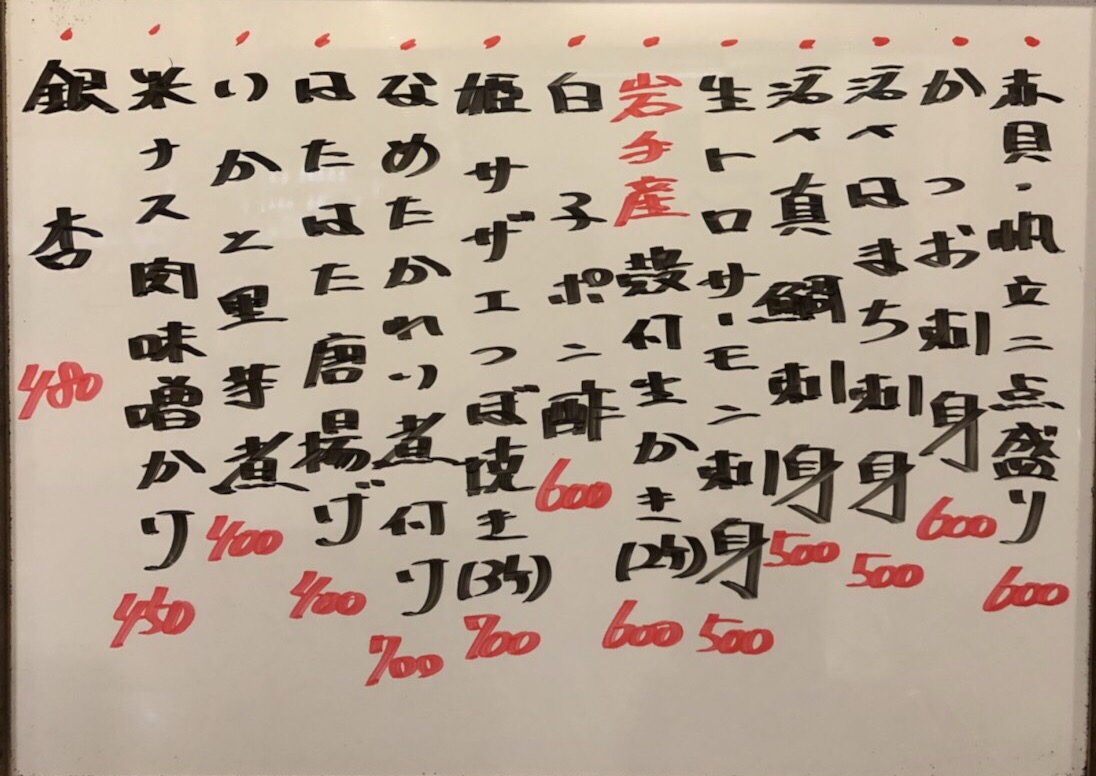 赤貝・帆立二点盛り 600
かつお刺身 600
活〆はまち刺身 500
活〆真鯛刺身 500
生トロサーモン刺身 500
岩手産殻付生かき(2ケ) 600
白子ポン酢 600
姫サザエつぼ焼き(3ケ) 700
なめたかれい煮付け 700
はたはた唐揚げ 400
いかと里芋煮 400
米ナス肉味噌かけ 450
銀杏 480